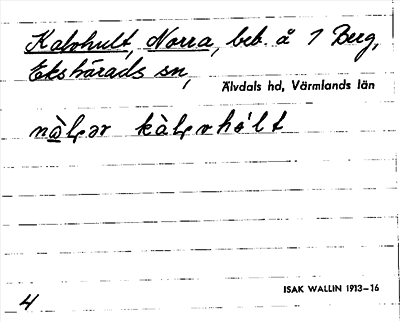 Kalvhult, Norra, beb. å 1 Berg,
Ekshärads sn,
Älvdals hd, Värmlands län
ISAK WALLIN 1913-16
4